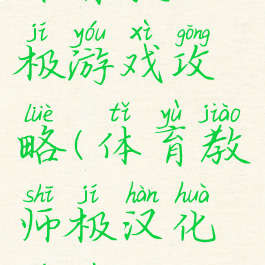 jí yóu xì gōng
极游戏攻
lüè tǐ yù jiào
略(体育教
shī jí hàn huà
师极汉化